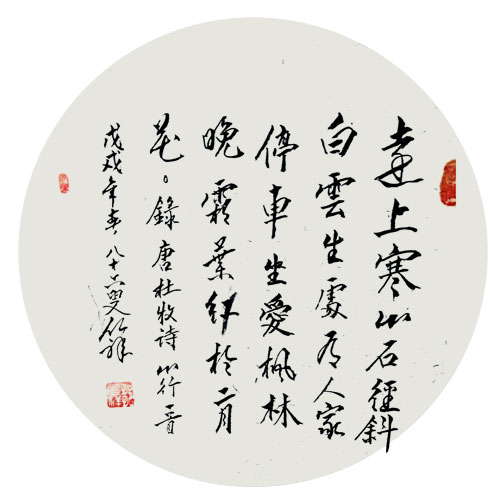 遠上寒山石徑斜
白雲生處有人家
停車坐愛楓林
晚霜葉紅於二月
花。錄唐杜牧詩山行一首
戊戌年春八十六叟